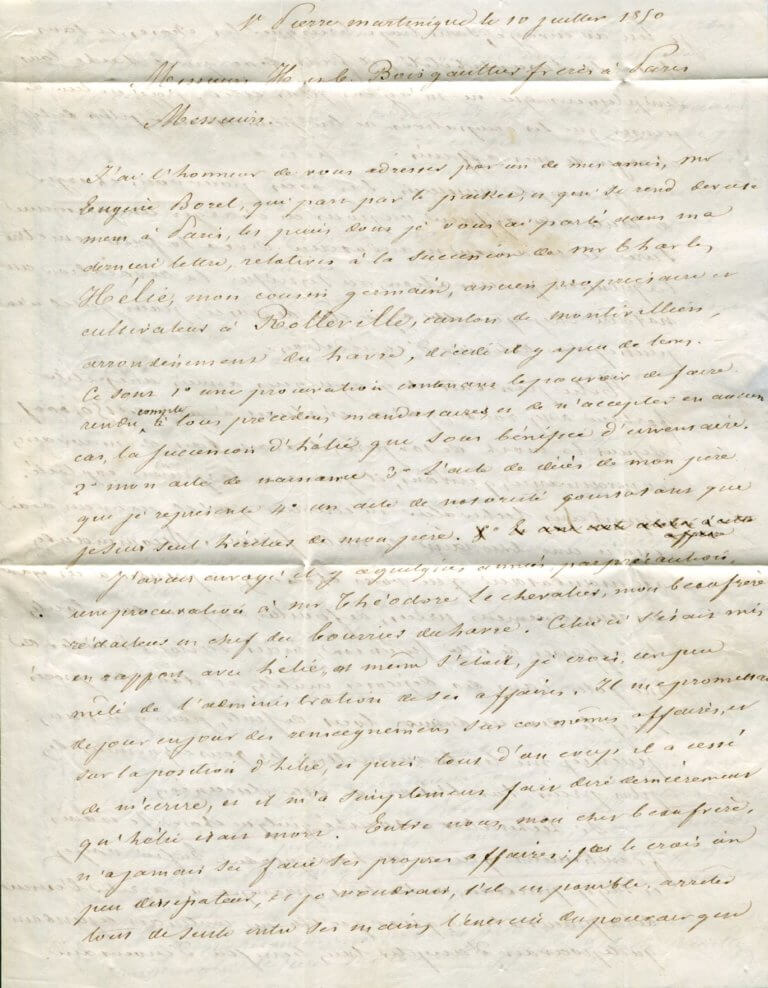 St Pierre martinique le 10 juillet 1850
Messieurs H et Boisgaultier frères à Paris
Messieurs.
J'ai l'honneur de vous adresser par un de mes amis, Mr
Eugène Borel, qui part par le packet, et qui se rend
à Paris, les pièces dont je vous ai parlé dans ma
dernière lettre, relatives à la succession de Mr Charles
Hélie, mon cousin germain, ancien propriétaire et
cultivateur à Rolleville, canton de montivilliers,
arrondissement du havre, décédé il y a peu de tems. —
Ce sont 1° une procuration contenant le pouvoir de faire
rendre compte à tous précédens mandataires et de n'accepter en aucun
cas, la succession d'hélie que sous bénéfice d'inventaire.
2° mon acte de naissance 3° l'acte de décès de mon père
que je représente 4° un acte de notoriété que
je suis seul héritier de mon père.
J'avais envoyé il y a quelques années, par précaution,
une procuration à mr Théodore Lechevalier, mon beaufrère
rédacteur en chef du Courrier du havre. Celui ci s'était mis
en rapport avec hélie, et même s'était, je crois, un peu
mêlé de l'administration de ses affaires. Il me promettait
de jour en jour des renseignemens sur ces mêmes affaires, et
sur la position d'hélie, et puis tout d'un coup il a cessé
de m'écrire, et il m'a simplement fait dire dernièrement
qu'hélie était mort. Entre nous, mon cher beaufrère,
n'a jamais su faire ses propres affaires; je le crois un
peu dissipateur, et je voudrais, s'il est possible, arrêter
tout de suite entre ses mains, l'exercice du pouvoir que